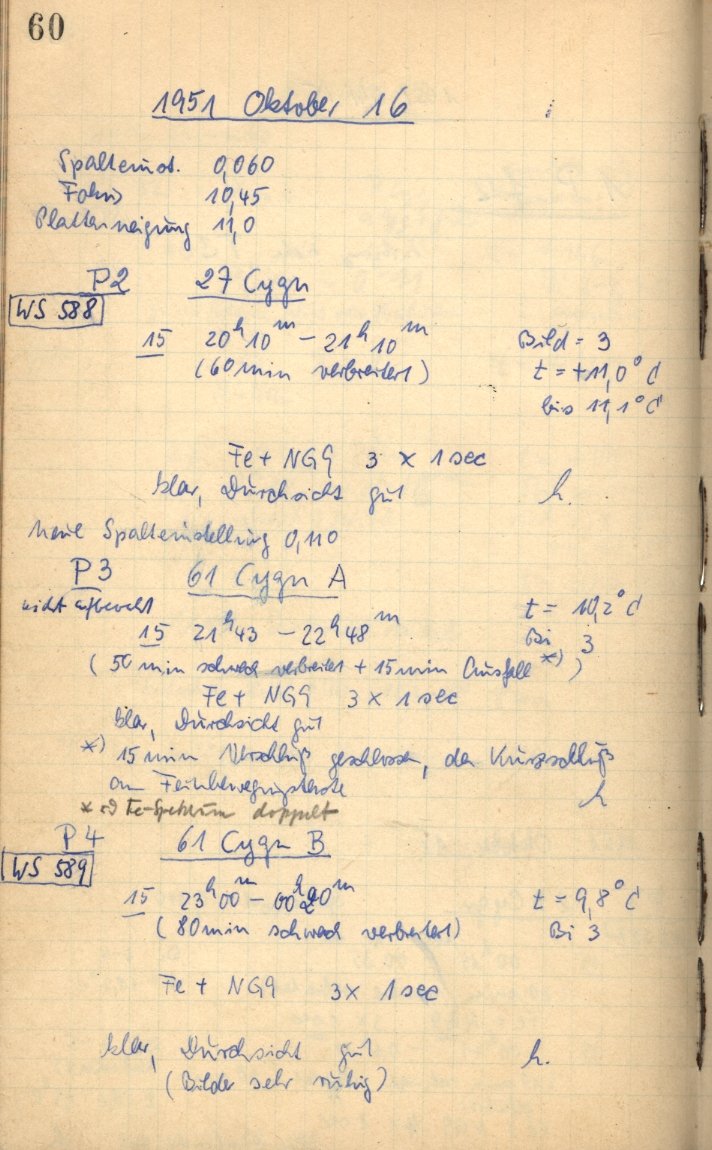 60
1951 Oktober 16
Spalteinst. 0,060
Fokus 10,45
Plattenneigung 11,0
P2 27 Cygn
WS 588
15 20h10m – 21h10m Bild = 3
(60 min verbreitert) t = +11,0° C
bis 11,1° C
Fe + NG9 3 x 1 sec
klar, Durchsicht gut h.
neue Spalteinstellung 0,110
P3 61 Cygn A
nicht aufbewahrt t = 10,2° C
15 21h43 – 22h48m Bi 3
(50 min schwach verbreitert + 15 min Ausfall *))
Fe + NG9 3 x 1 sec
klar, Durchsicht gut
*) 15 min Verschluß geschlossen, da Kurzschluß
an Feinbewegungstaste h
Fe-Spektrum doppelt
P4 61 Cygn B
WS 589
15 23h00m – 00h20m t = 9,8° C
(80 min schwach verbreitert) Bi 3
Fe + NG9 3x 1 sec
klar, Durchsicht gut h.
(Bilder sehr ruhig)